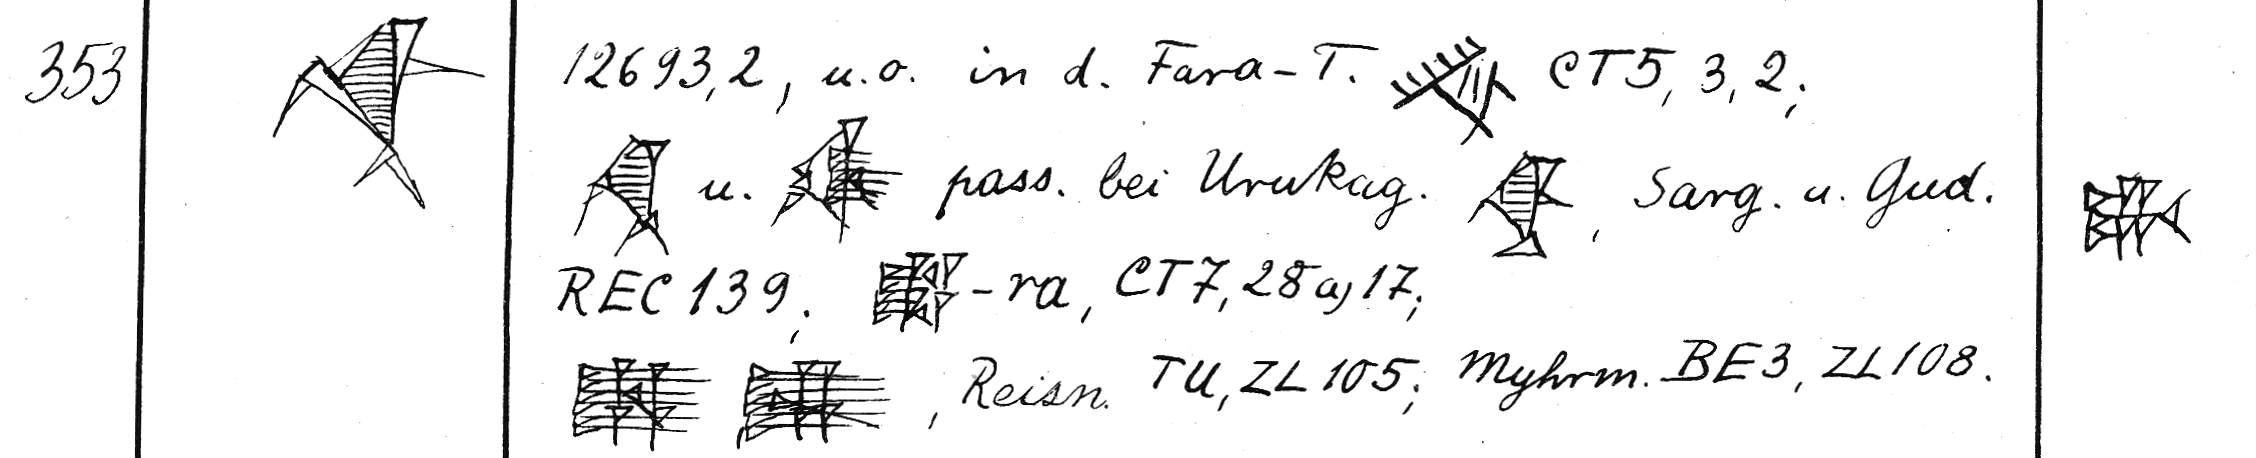 353 12693,2, u.o. in d. Fara-T. CT5,3,2;
u. pass. bei Urukag. , Sarg. u. Gud.
REC139; -ra, CT7,28a,17;
, Reisn. TU, ZL105; Myhrm. BE3, ZL108.